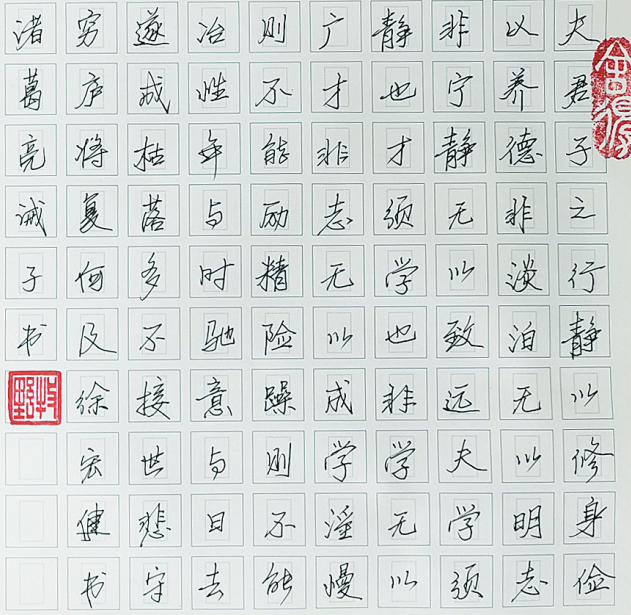 夫君子之行静以修身俭
以养德非淡泊无以明志
非宁静无以致远夫学须
静也才须学也非学无以
广才非志无以成学淫慢
则不能励精险躁则不能
冶性年与时驰意与日去
遂成枯落多不接世悲守
穷庐将复何及徐宏健书
诸葛亮诫子书
舍得